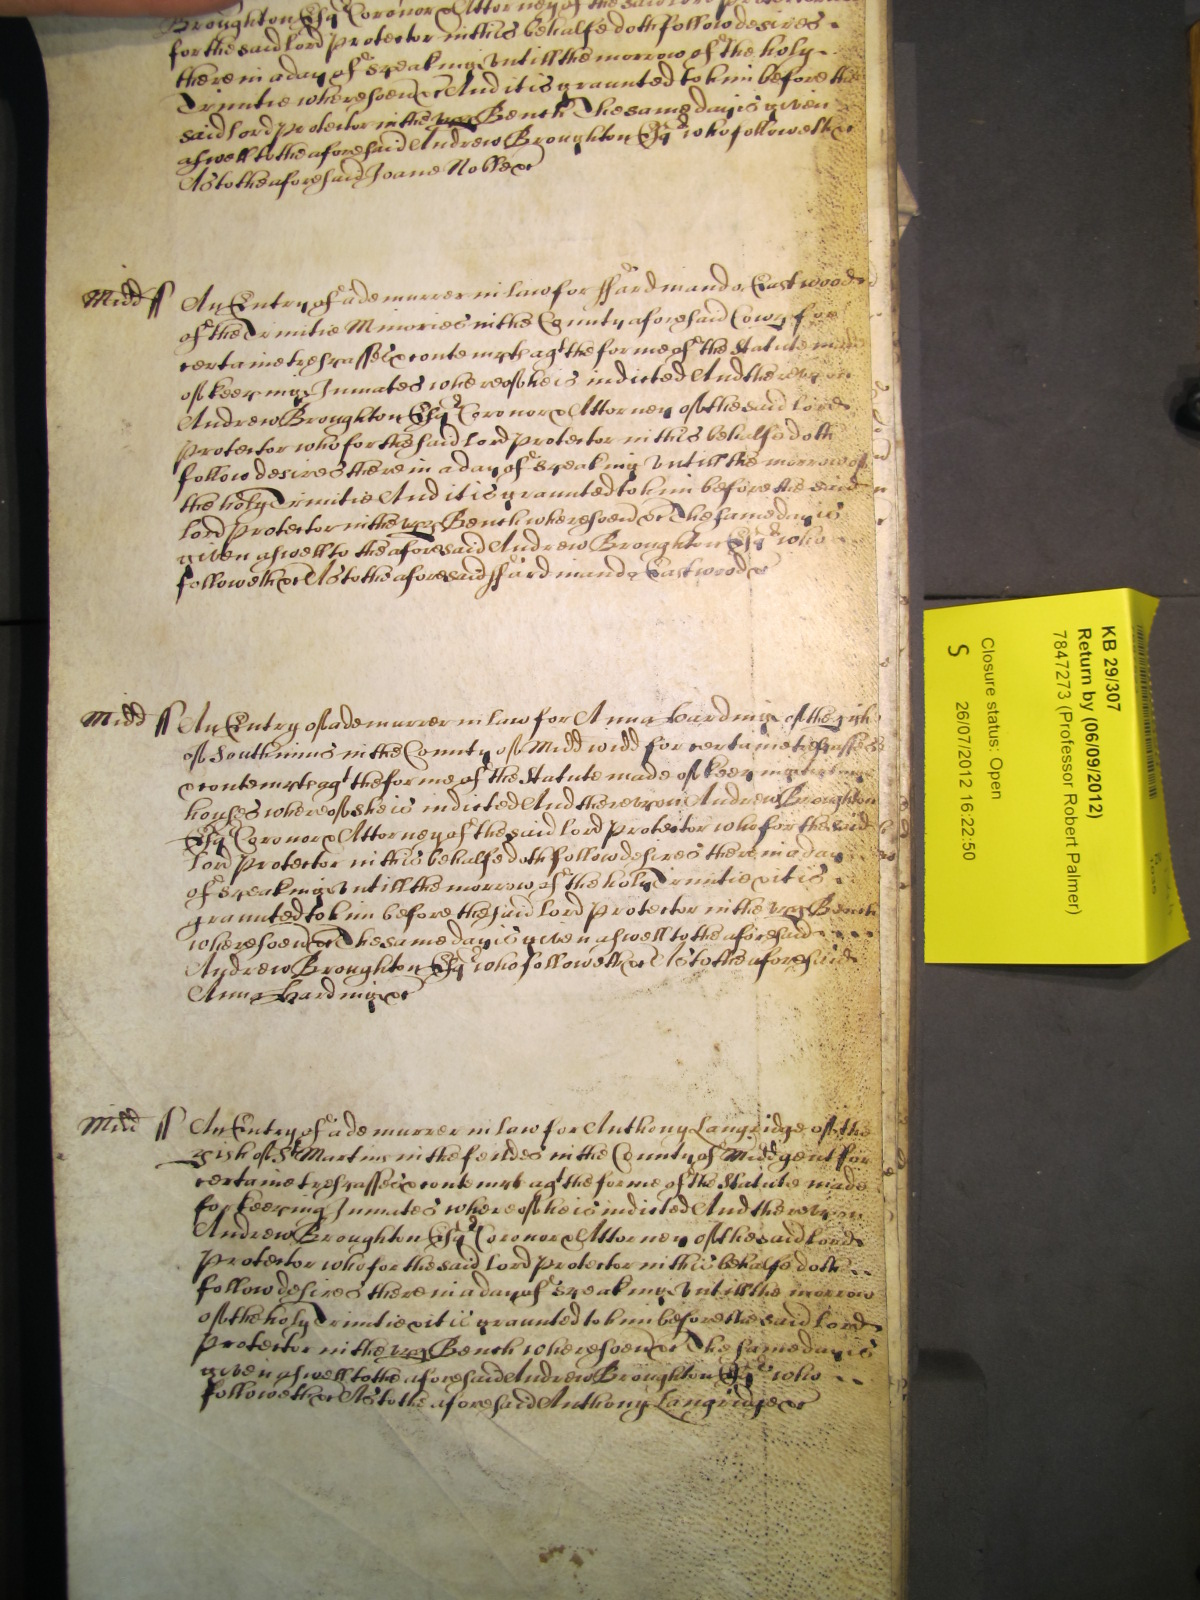 Broughton Esqr Coronor & Attorney of the said Lord Protector
for the said Lord Protector in this behalfe doth follow desires
therein a day of speaking untill the morrow of the holy
Trinitie wheresoevr &c And it is graunted to him before the
said Lord Protector in the upp Bench The same day is given
aswell to the aforesaid Andrew Broughton Esqr who followeth &c
As to the aforesaid Joane Nobbe &c
Midd ss An Entry of a demurrer in law for ffardinando Eastwood
of the Trinitie Minories in the County aforesaid for
certaine trespasses & contempts agt the forme of the Statute made
of keeping Inmates whereof he is indicted And thereupon
Andrew Broughton Esqr Coronor & Attorney of the said Lord
Protector who for the said Lord Protector in this behalfe doth
follow desires therein a day of speaking untill the morrow of
the holy Trinitie And it is graunted to him before the said
Lord Protector in the upp Bench wheresoevr &c The same day is
given aswell to the aforesaid Andrew Broughton Esqr who
followeth &c As to the aforesaid ffardinando Eastwood &c
Midd ss An Entry of a demurrer in law for Anna Harding of the pish
of South mims in the County of Midd widd for certaine trespasses
& contempts agt the forme of the Statute made of keeping
houses whereof she is indicted And thereupon Andrew Broughton
Esqr Coronor & Attorney of the said Lord Protector who for the said
Lord Protector in this behalfe doth follow desires therein a day
of speaking untill the morrow of the holy Trinitie & it is
graunted to him before the said Lord Protector in the upp Bench
wheresoevr &c The same day is given aswell to the aforesaid
Andrew Broughton Esqr who followeth &c As to the aforesaid
Anna Harding &c
Midd ss An Entry of a demurrer in law for Anthony Langridge of the
pish of St Martins in the feildes in the County of Midd gent for
certaine trespasses & contempts agt the forme of the Statute made
for keeping Inmates whereof he is indicted And thereupon
Andrew Broughton Esqr Coronor & Attorney of the said Lord
Protector who for the said Lord Protector in this behalfe doth
follow desires therein a day of speaking untill the morrow
of the holy Trinitie & it is graunted to him before the said Lord
Protector in the upp Bench wheresoevr &c The same day is
given aswell to the aforesaid Andrew Broughton Esqr who
followeth &c As to the aforesaid Anthony Langridge &c
KB 29/307
Return by (06/09/2012)
7847273 (Professor Robert Palmer)
Closure status: Open
S 26/07/2012 16:22:50